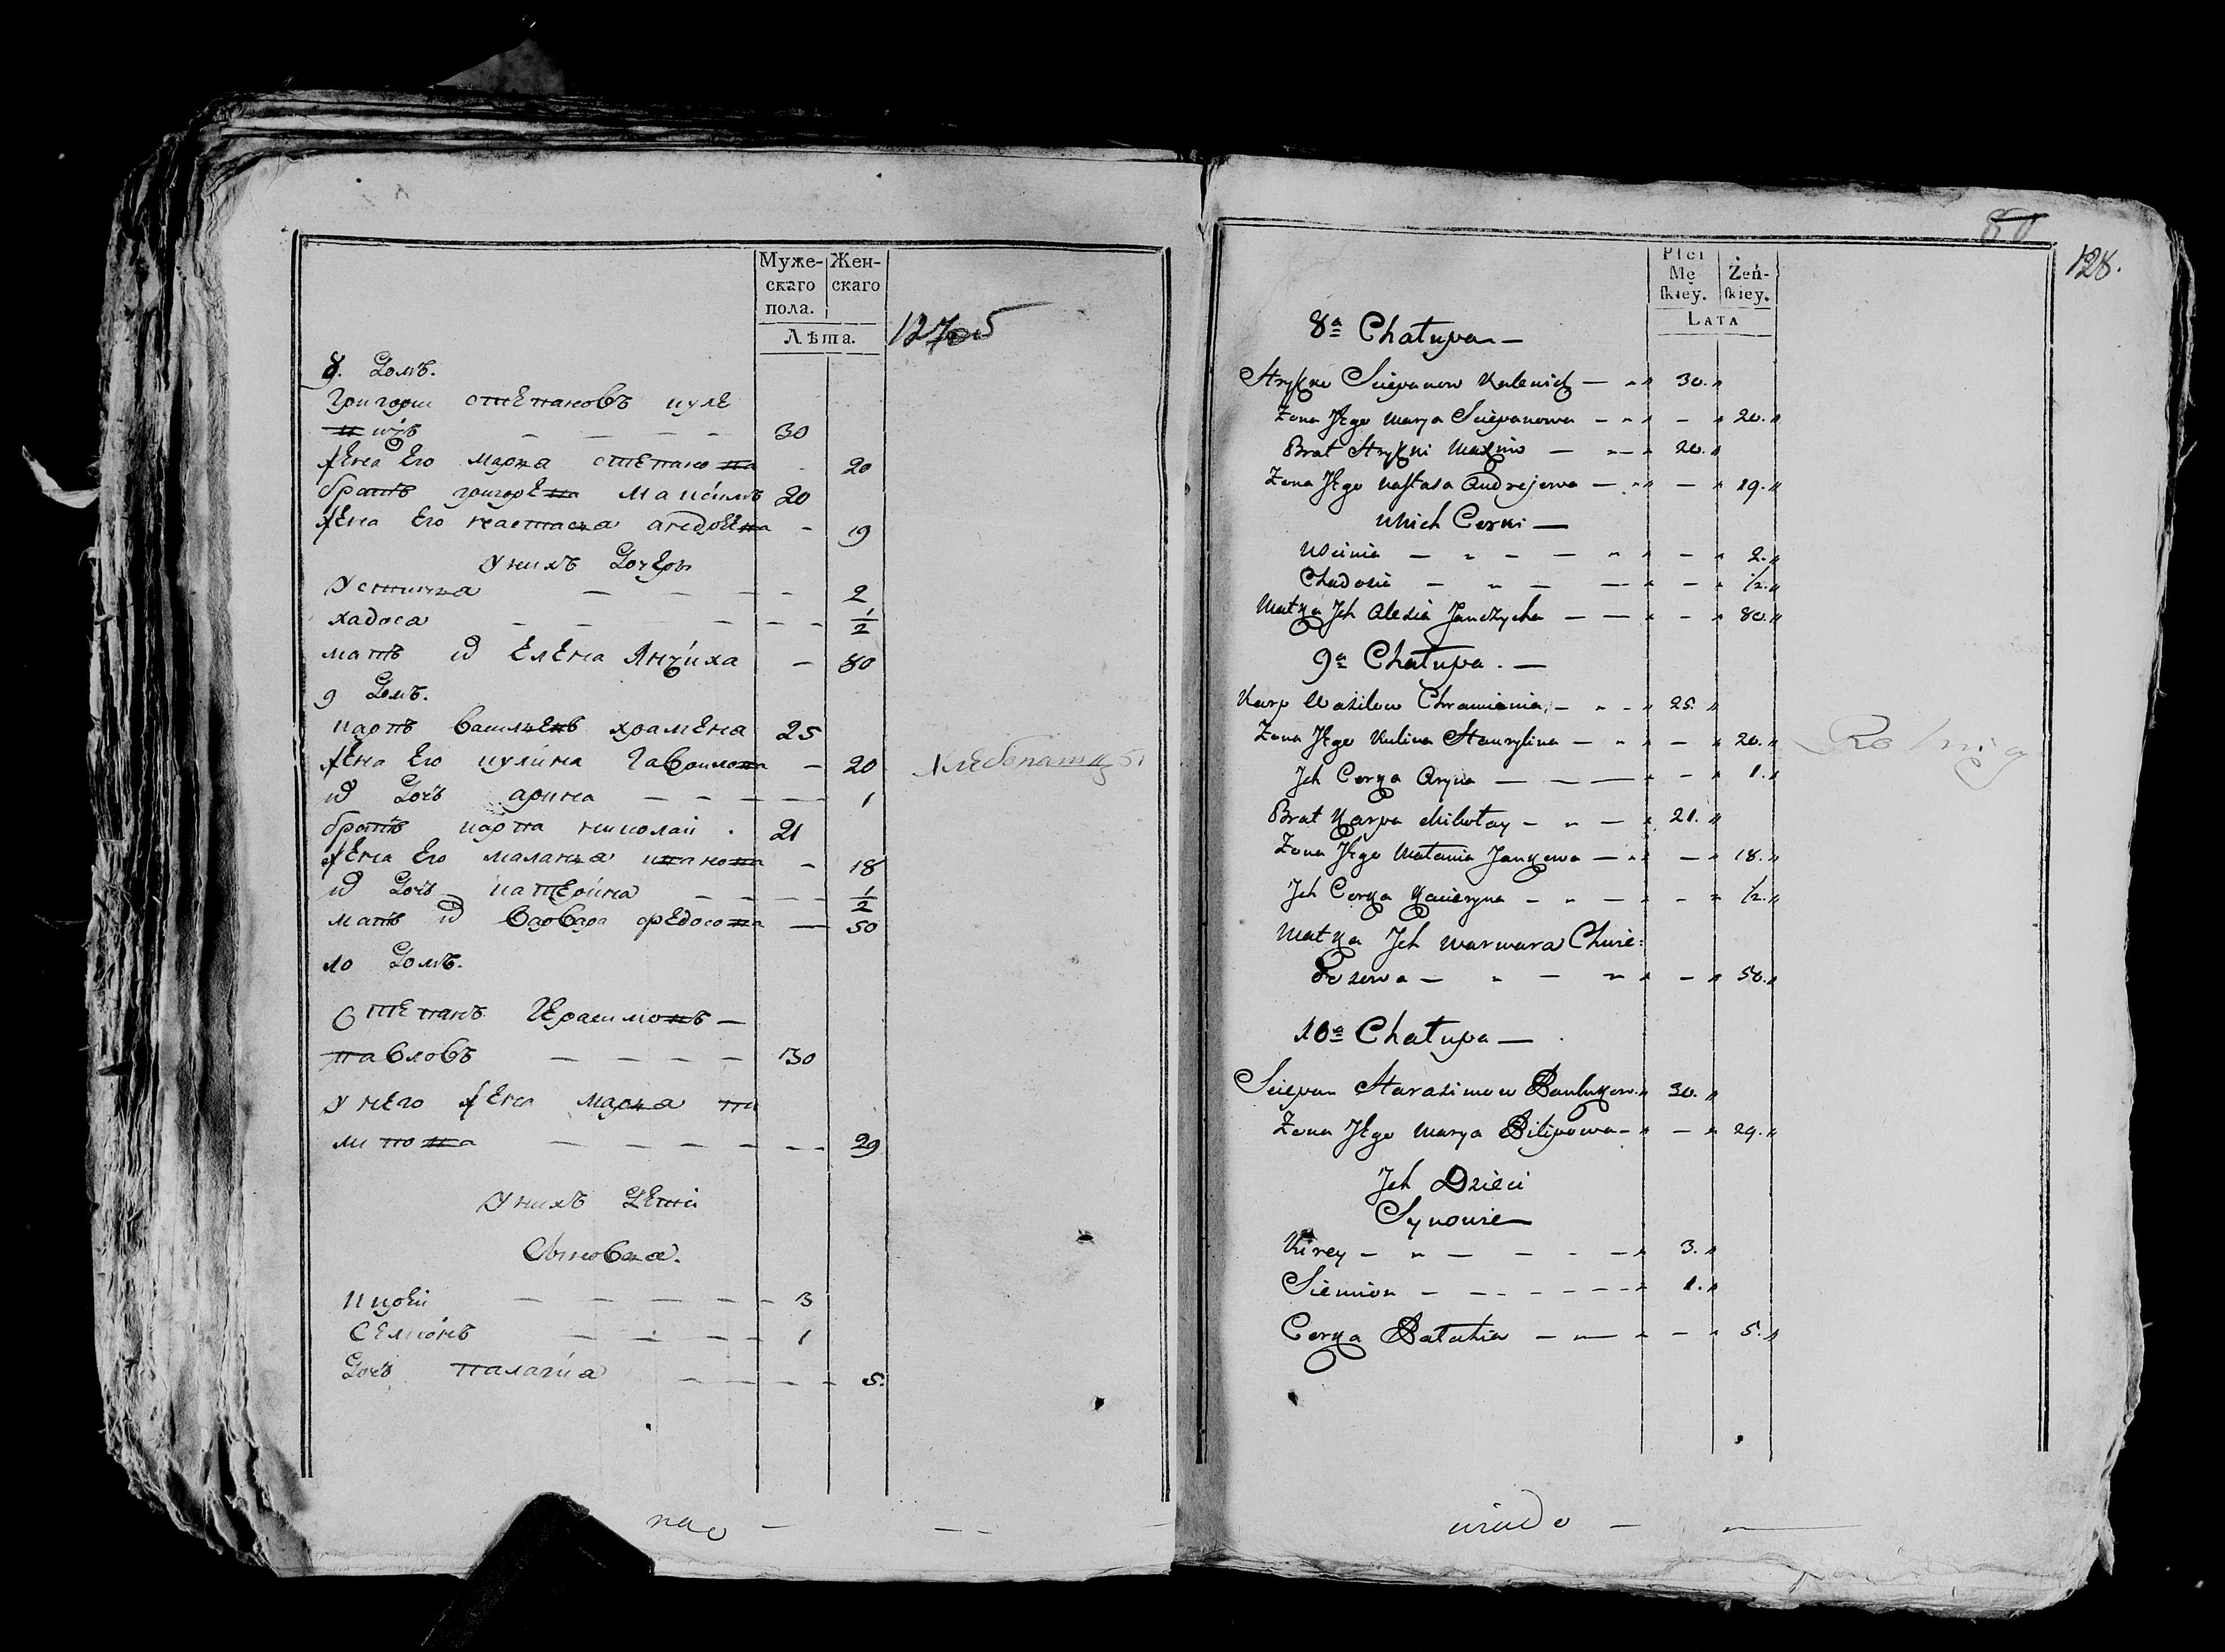 Муже-
скаго
пола.
Жен-
скаго
Лѣта.
127об
8. Домъ.
Григори степановъ куле
шъ — — — — 30
жена Его марья степанова - 20
братъ григорева максимъ 20
жена Его настасья андрѣева - 19
У нихъ Дочеры
Устинья — — — - 2
хадоса — — — — - 1/2
мать их Елена Янчиха — 80
9 Домъ.
карпъ васильевъ храмена 25
жена Его кулина Гаврилова — 20
их Дочь арина — - - — 1
братъ карпа николай . 21
жена Его маланья иванова - 18
их Дочь катерина — — - - 1/2
мать их варвара федосова — 50
Хлебопашцы
10 Домъ.
Степанъ Герасимовъ —
павловъ — — — — 30
У него жена марья пи
липова — — — — — 29
У нихъ Дети
Сыновья.
Кирей — — — — - 3
Семионъ — - - - 1
Дочь палагия — — — - 5.
128.
Płci
Mę
skiey.
Żeń-
skiey.
LATA
8a Chałupa —
Hryſko Sciepanow Kulesich — 30.
Żona Jego Marya Sciepanowa — 20.
Brat Hryſki Maxim — 20.
Żona Jego Naſtasa Andrejewa — 19.
Unich Corki —
Uscinia — — — 2.
Chadosia — — — 1/2.
Matka Jch Alesia Janczycha — — 80.
9a Chałupa. —
Karp Wasilew Chramienia — 25.
Żona Jego Kulina Hauryłina — 20.
Jch Corka Aryna — — — 1.
Brat Karpa Mikołay — — 21.
Żona Jego Małania Jankowa — 18.
Jch Corka Kacieryna — — 1/2.
Matka Jch Warwara Chwie:
dosowa — — 50.
Rolnicy
10a Chałupa —
Sciepan Harasimow Paulukow 30.
Żona Jego Marya Pilipowa — 29.
Jch Dzieci
Synowie
Kirey — — — 3.
Siemion — — — 1.
Corka Pałahia — — 5.